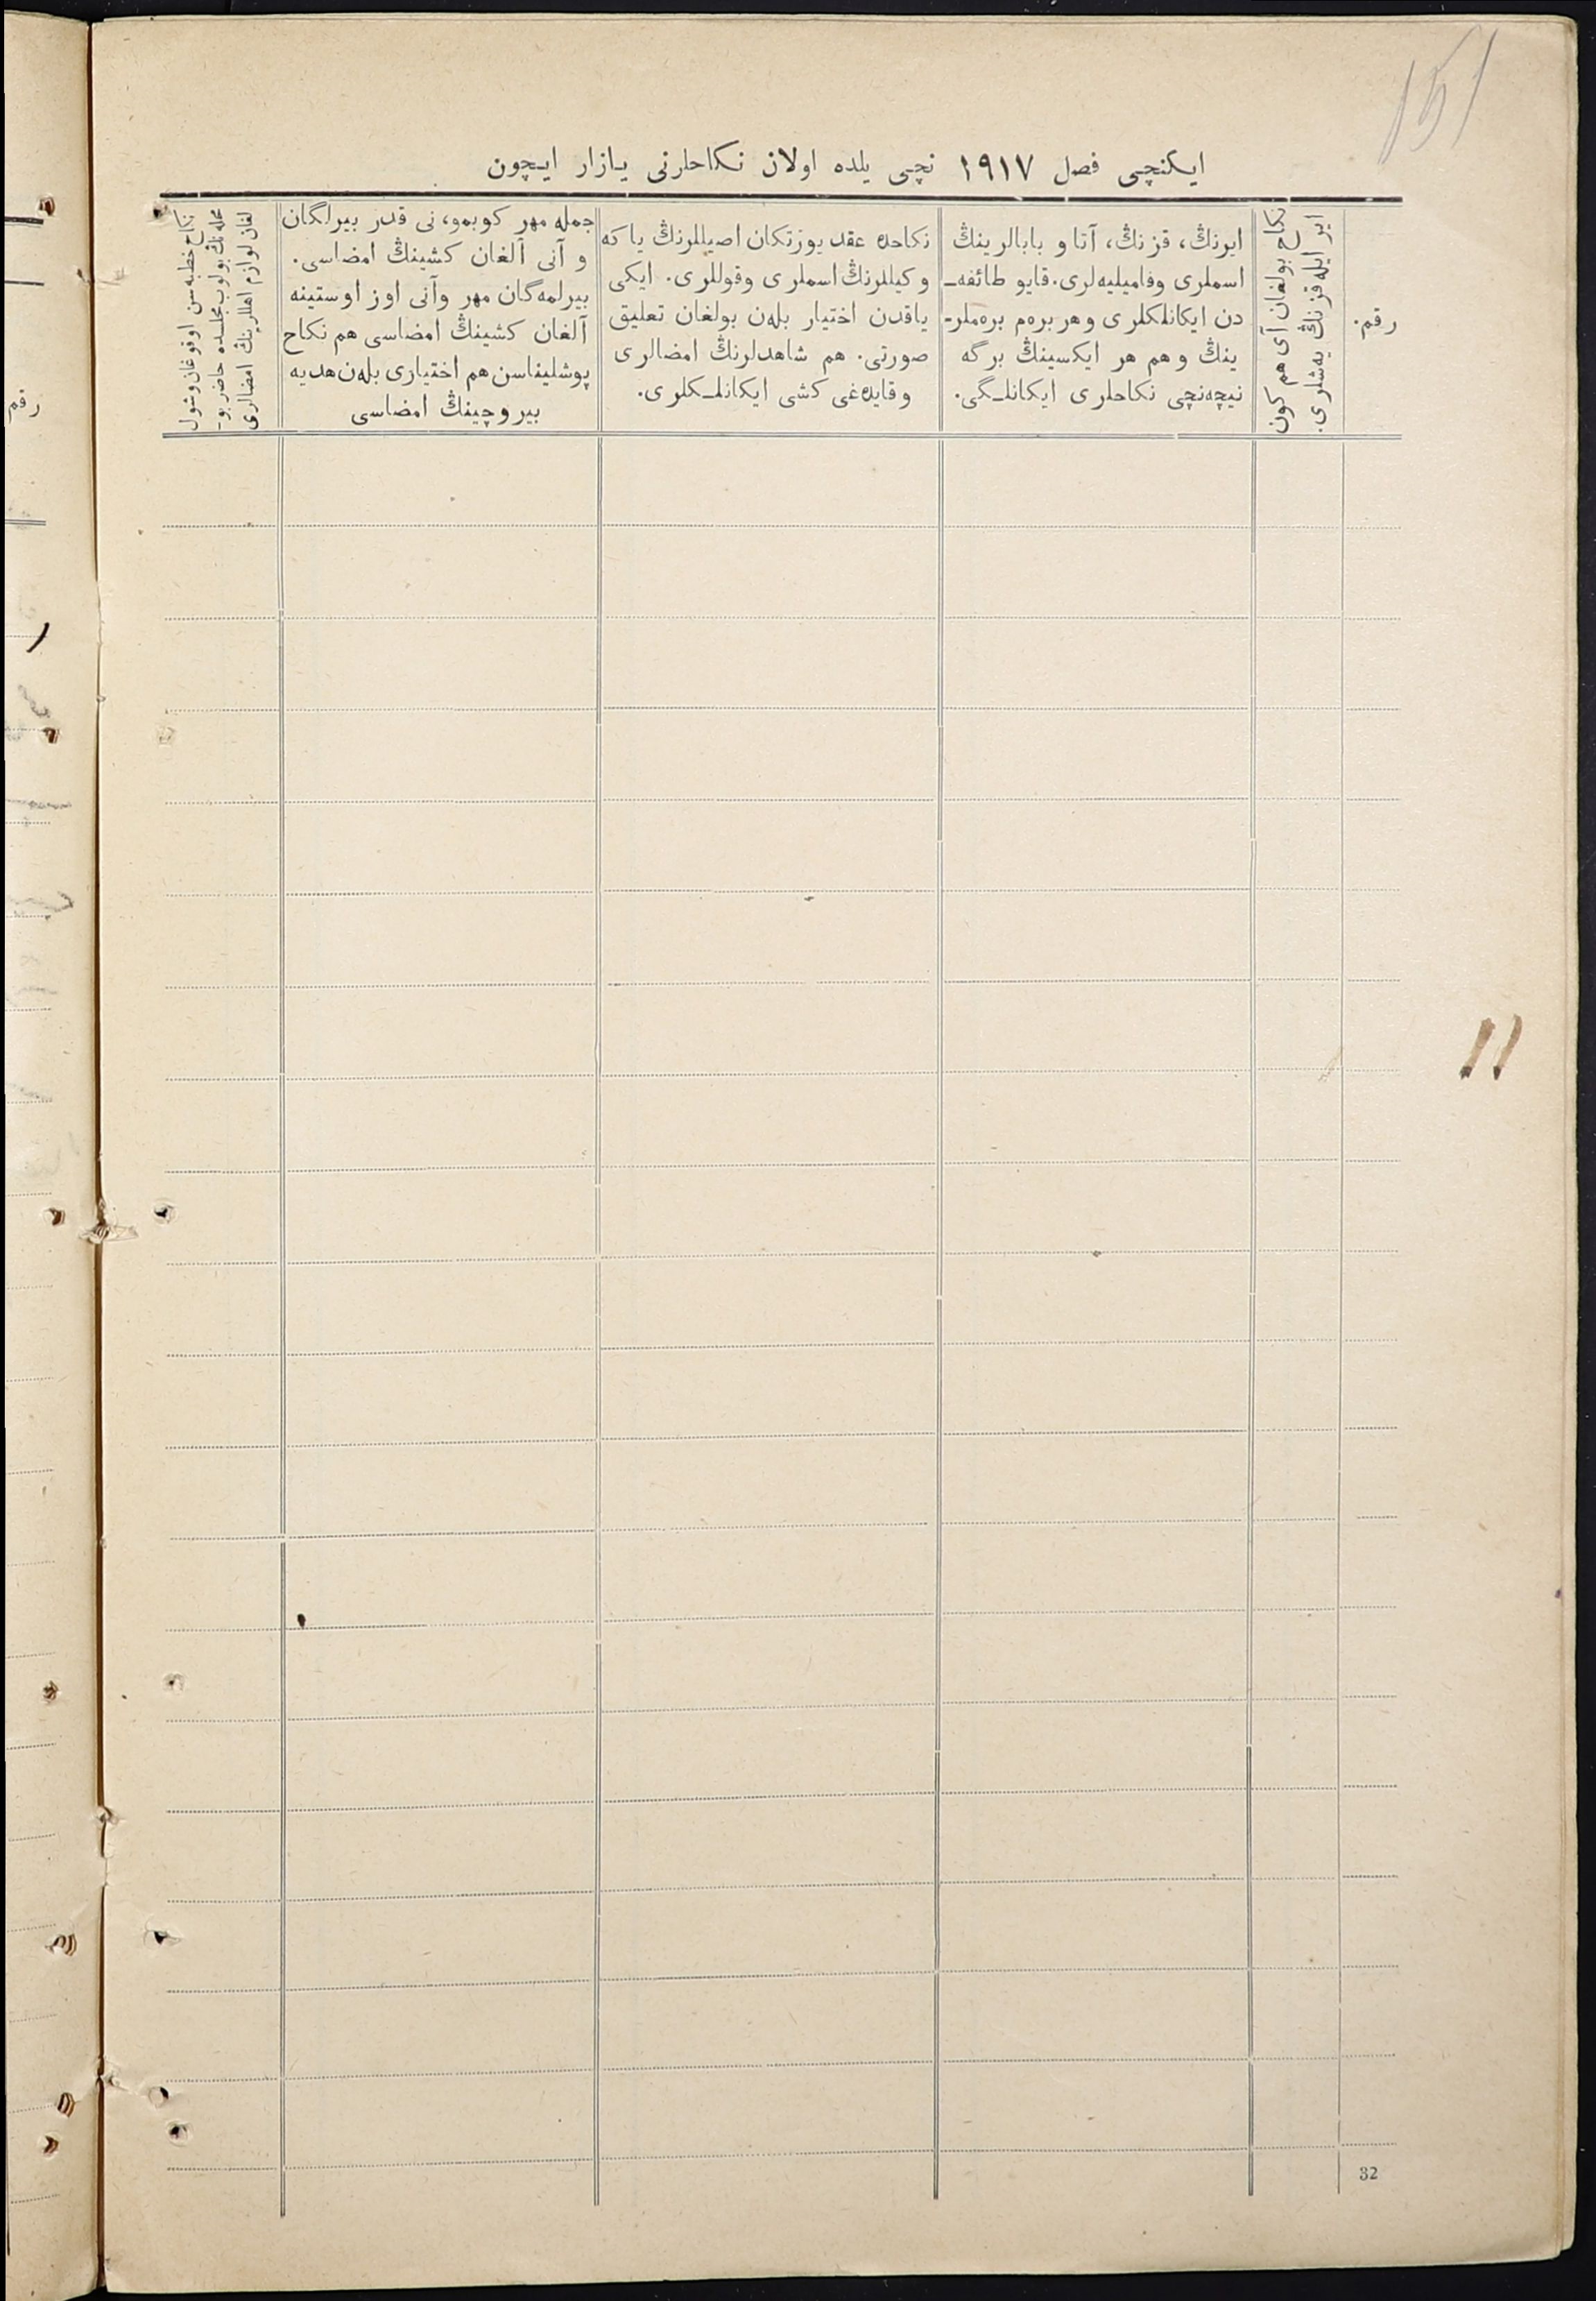 151
ایکنچی فصل ١٩١٧ نچی یلده اولان نکاحلرنی یازار ایچون
رقم.
ایر ایله قزنڭ یەشلری.
نکاح بولغان آی هم کون
ایرنڭ، قزنڭ، آتا و بابالرینڭ
اسملری وفامیلیەلری. قایو طائفه‌ـ
دن ایکانلکلری و هر برەم برەملر-
ینڭ و هم هر ایکسینڭ برگه
نیچەنچی نکاحلری ایکانلـگی.
نکاحده عقد یوزتکان اصیللرنڭ یا که
وکیللرنڭ اسملری وقوللری. ایکی
یاقدن اختیار بلەن بولغان تعلیق
صورتی. هم شاهدلرنڭ امضالری
وقایدەغی کشی ایکانلـکلری.
جمله مهر کوبمو، نی قدر بیرلگان
و آنی آلغان کشینڭ امضاسی.
بیرلمەگان مهر وآنی اوز اوستینه
آلغان کشینڭ امضاسی هم نکاح
پوشلیناسن هم اختیاری بلەن هدیه
بیروچینڭ امضاسی
نکاح خطبه سن اوقوغان وشول
محله نڭ بولوب مجلسده حاضر بو-
لغان لوازم اهللرینڭ امضالری
رقم
11
32